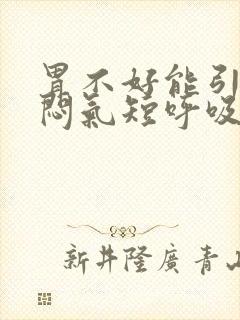 胃不好能引
悶氣短呼吸
新井隆廣青山